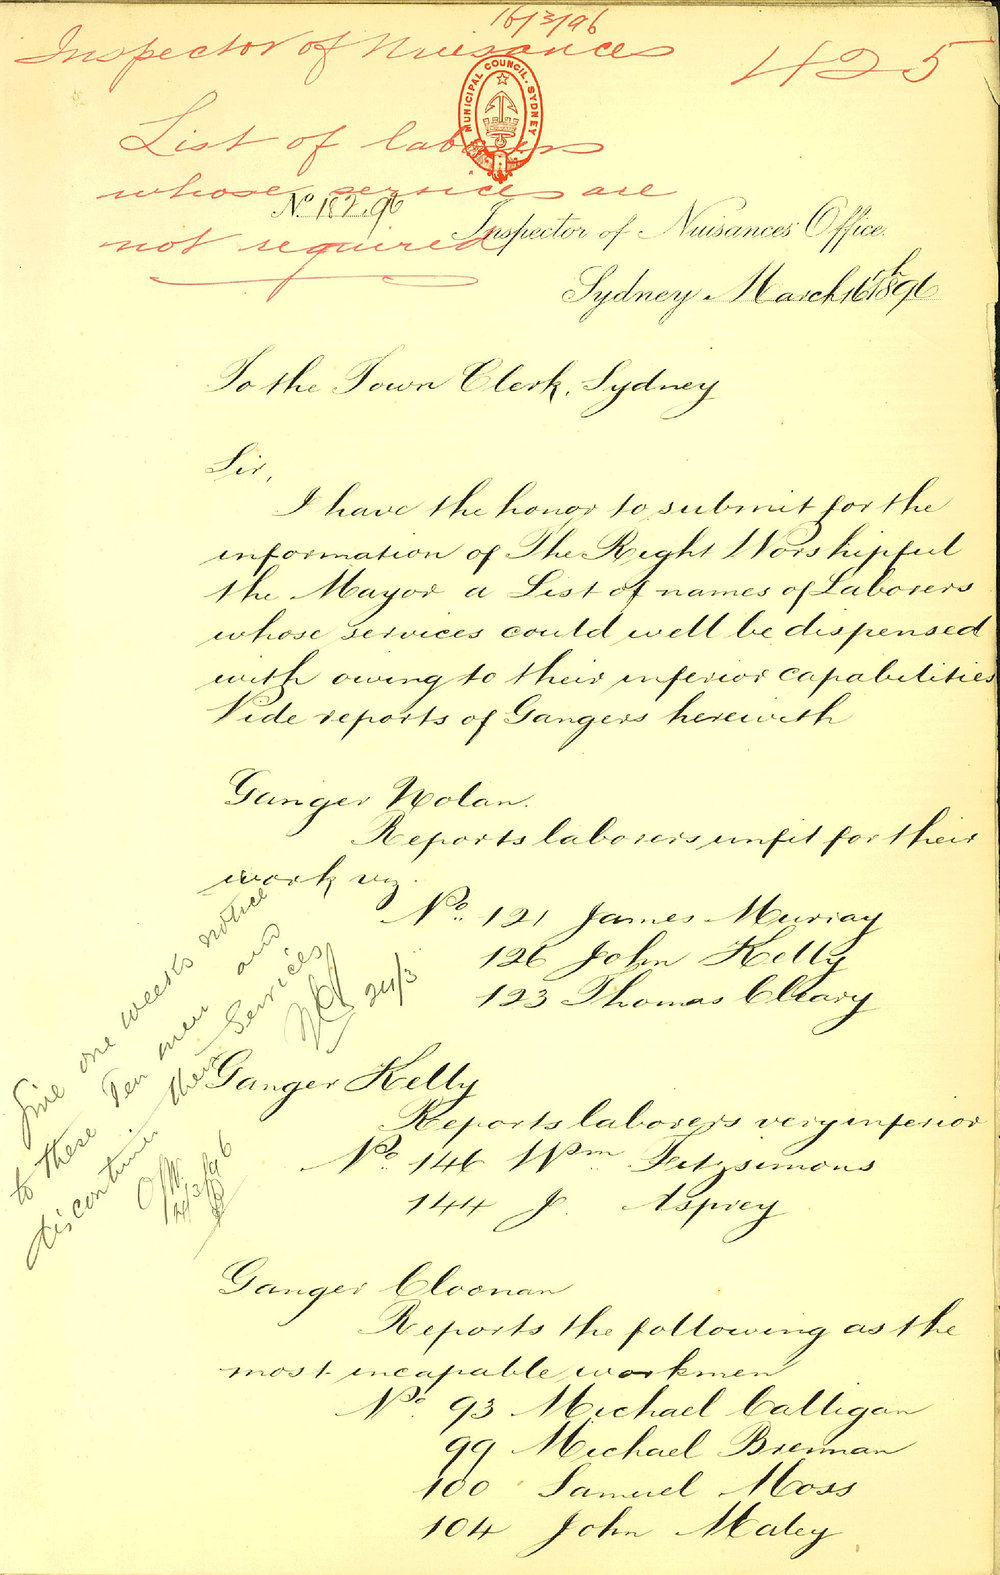 16/3/96
Inspector of Nuisances
425
MUNICIPAL COUNCIL. SYDNEY
List of laborers
whose services are
not required
No. 182.96
Inspector of Nuisances' Office.
Sydney March 16th 1896
To the Town Clerk, Sydney
Sir,
I have the honor to submit for the
information of The Right Worshipful
the Mayor a List of names of Laborers
whose services could well be dispensed
with owing to their inferior capabilities
Vide reports of Gangers herewith
Ganger Nolan.
Reports laborers unfit for their
work viz.
No. 121 James Murray
126 John Kelly
123 Thomas Cleary
Give one weeks notice
to these Ten men and
discontinue their Services
24/3
Ganger Kelly
Reports laborers very inferior
No. 146 Wm Fitzsimons
144 J. Asprey
24/3/96
Ganger Cloonan
Reports the following as the
most incapable workmen
No. 93 Michael Calligan
99 Michael Brennan
100 Samuel Moss
104 John Maley